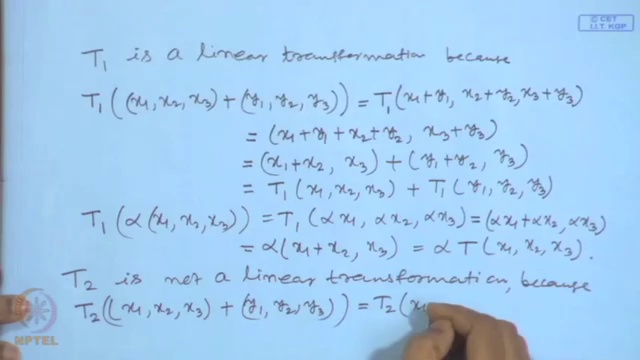 © CET
I.I.T. KGP
T₁ is a linear transformation because
T₁((x₁, x₂, x₃) + (y₁, y₂, y₃)) = T₁(x₁+y₁, x₂+y₂, x₃+y₃)
= (x₁+y₁+x₂+y₂, x₃+y₃)
= (x₁+x₂, x₃) + (y₁+y₂, y₃)
= T₁(x₁, x₂, x₃) + T₁(y₁, y₂, y₃)
T₁(α(x₁, x₂, x₃)) = T₁(αx₁, αx₂, αx₃) = (αx₁+αx₂, αx₃)
= α(x₁+x₂, x₃) = αT(x₁, x₂, x₃).
T₂ is not a linear transformation, because
T₂((x₁, x₂, x₃) + (y₁, y₂, y₃)) = T₂(x₁
NPTEL